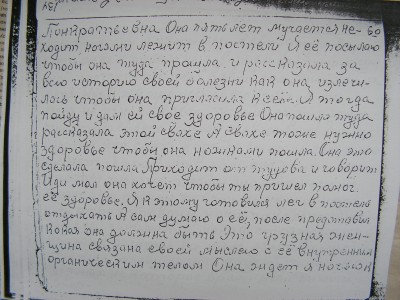 Панкратьевна Она пять лет мучется не хо
ходит, ногами лежит в постели Я её посылаю
чтобы она туда пошла и рассказала за
всю историю своей болезни как она излечи-
лась чтобы она пригласила к себе. Я тогда
пойду и дам ей свое здоровье Она пошла туда
рассказала этой свахе А свахе тоже нужно
здоровье чтобы она ножками пошла. Она это
сделала пошла Приходит от тудова и говорит
Иди мол она хочет чтобы ты пришел помог
ей здоровье. Я к этому готовился лег в постель
отдыхать А сам думаю о её, после представил
какая она должна быть Это грузная жен-
щина связана своей мыслею с её внутренним
органическим телом Она ждет я ночью к